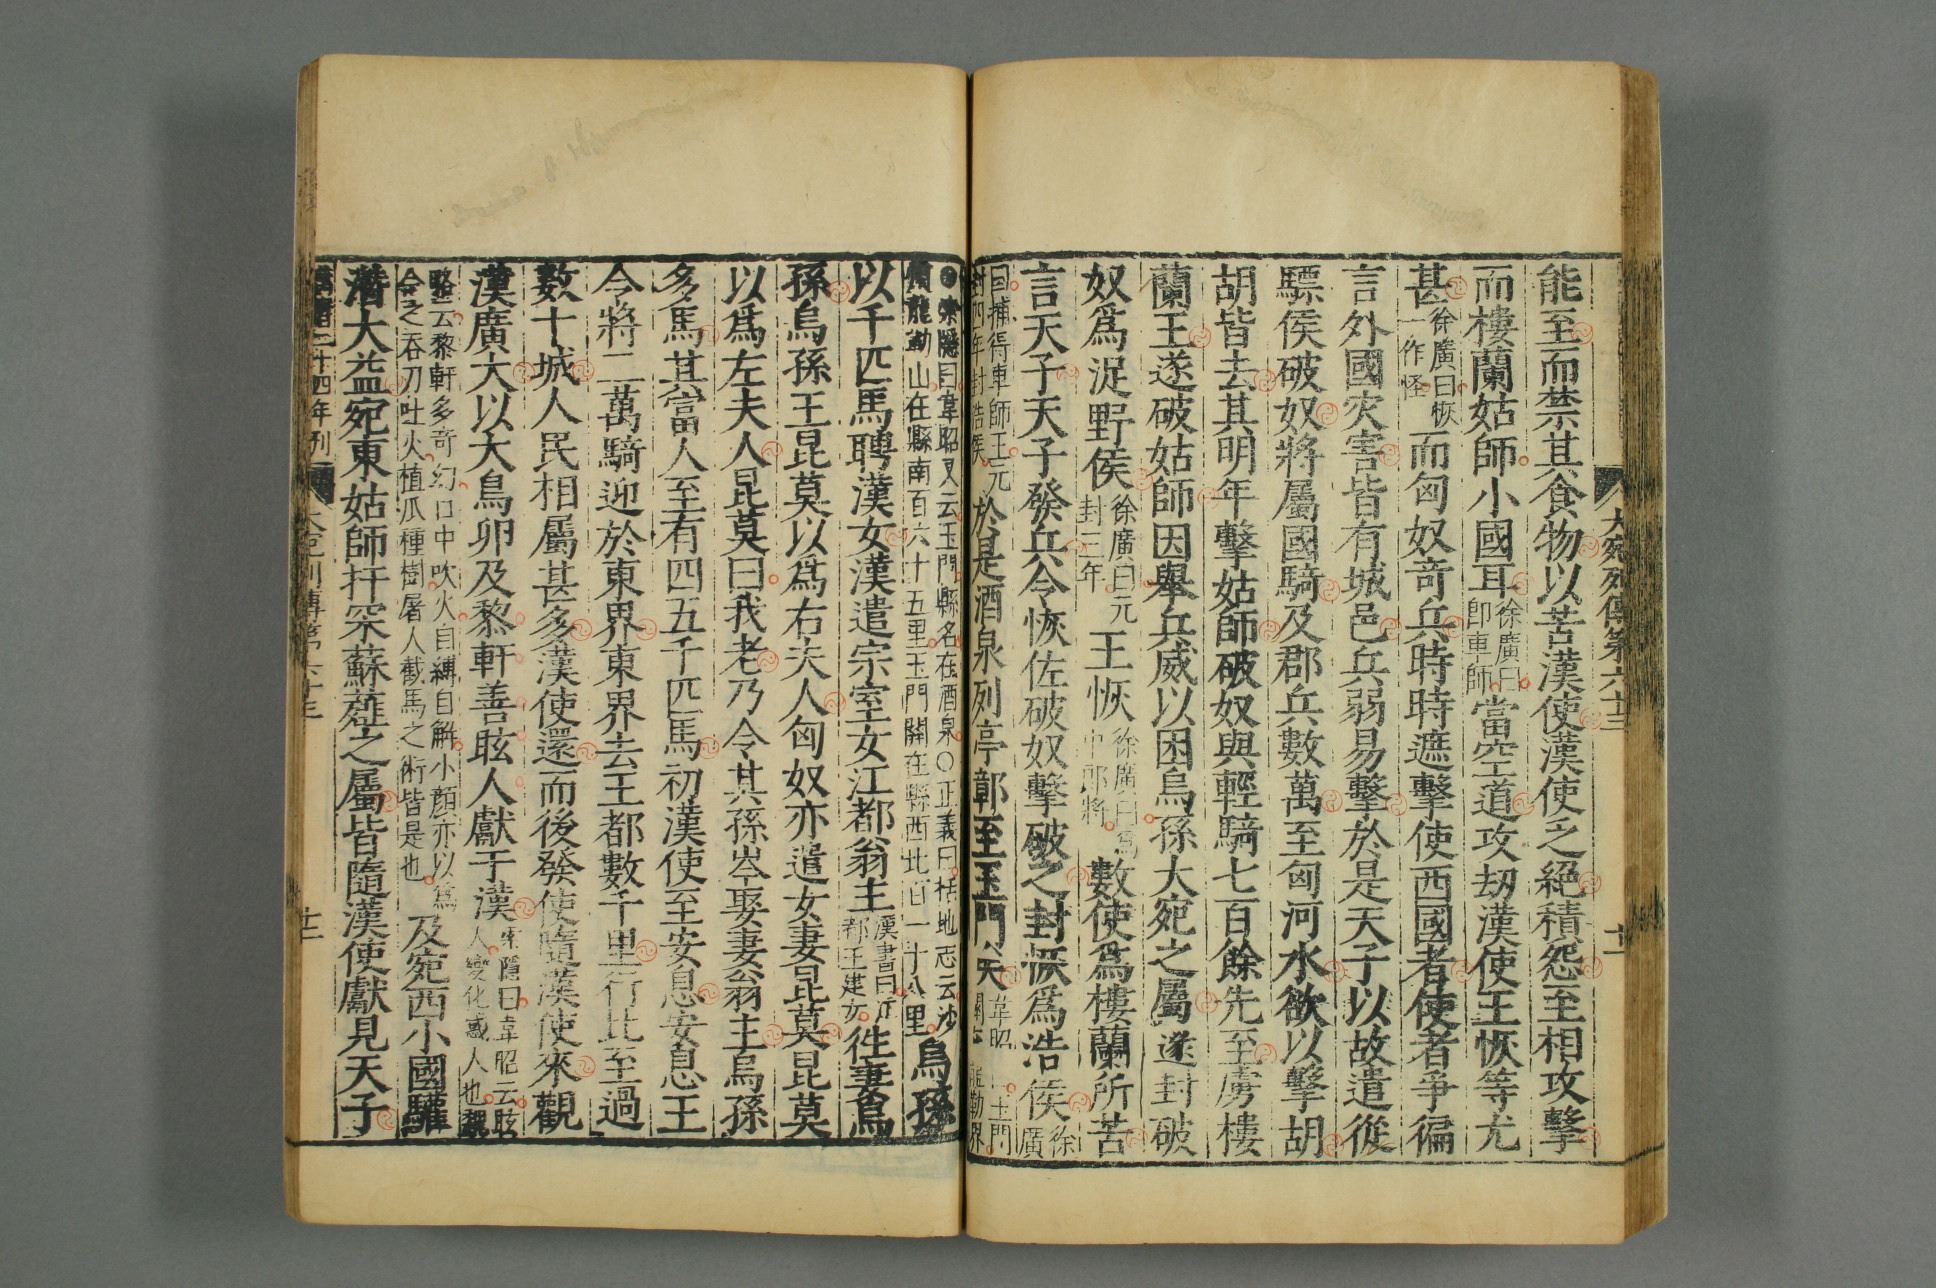 大宛列傳第六十三
十一
能至而禁其食物以苦漢使漢使乏絕積怨至相攻擊
而樓蘭姑師小國耳徐廣曰即車師當空道攻刼漢使王恢等尤
甚徐廣曰恢一作怪而匈奴奇兵時時遮擊使西國者使者爭徧
言外國灾害皆有城邑兵弱易擊於是天子以故遣從
驃侯破奴將屬國騎及郡兵數萬至匈河水欲以擊胡
胡皆去其明年擊姑師破奴與輕騎七百餘先至虜樓
蘭王遂破姑師因舉兵威以困烏孫大宛之屬遂封破
奴爲浞野侯徐廣曰元封三年王恢徐廣曰爲中郎將數使爲樓蘭所苦
言天子天子發兵令恢佐破奴擊破之封恢爲浩侯徐廣
曰捕得車師王元封四年封浩侯於是酒泉列亭鄣至玉門矣韋昭曰玉門關在龍勒界
索隱曰韋昭又云玉門縣名在酒泉○正義曰括地志云沙州龍勒山在縣南百六十五里玉門關在縣西北百一十八里烏孫
以千匹馬聘漢女漢遣宗室女江都翁主漢書曰江都王建女徃妻烏
孫烏孫王昆莫以爲右夫人匈奴亦遣女妻昆莫昆莫
以爲左夫人昆莫曰我老乃令其孫岑娶妻翁主烏孫
多馬其富人至有四五千匹馬初漢使至安息安息王
令將二萬騎迎於東界東界去王都數千里行比至過
數十城人民相屬甚多漢使還而後發使隨漢使來觀
漢廣大以大鳥卵及黎軒善眩人獻于漢索隱曰韋昭云眩人變化惑人也魏
略云黎軒多奇幻口中吹火自縛自解小顏亦以爲今之吞刀吐火植瓜種樹屠人截馬之術皆是也及宛西小國驩
潛大益宛東姑師扜罙蘇薤之屬皆隨漢使獻見天子
二十四年刊
大宛列傳第六十三
十二